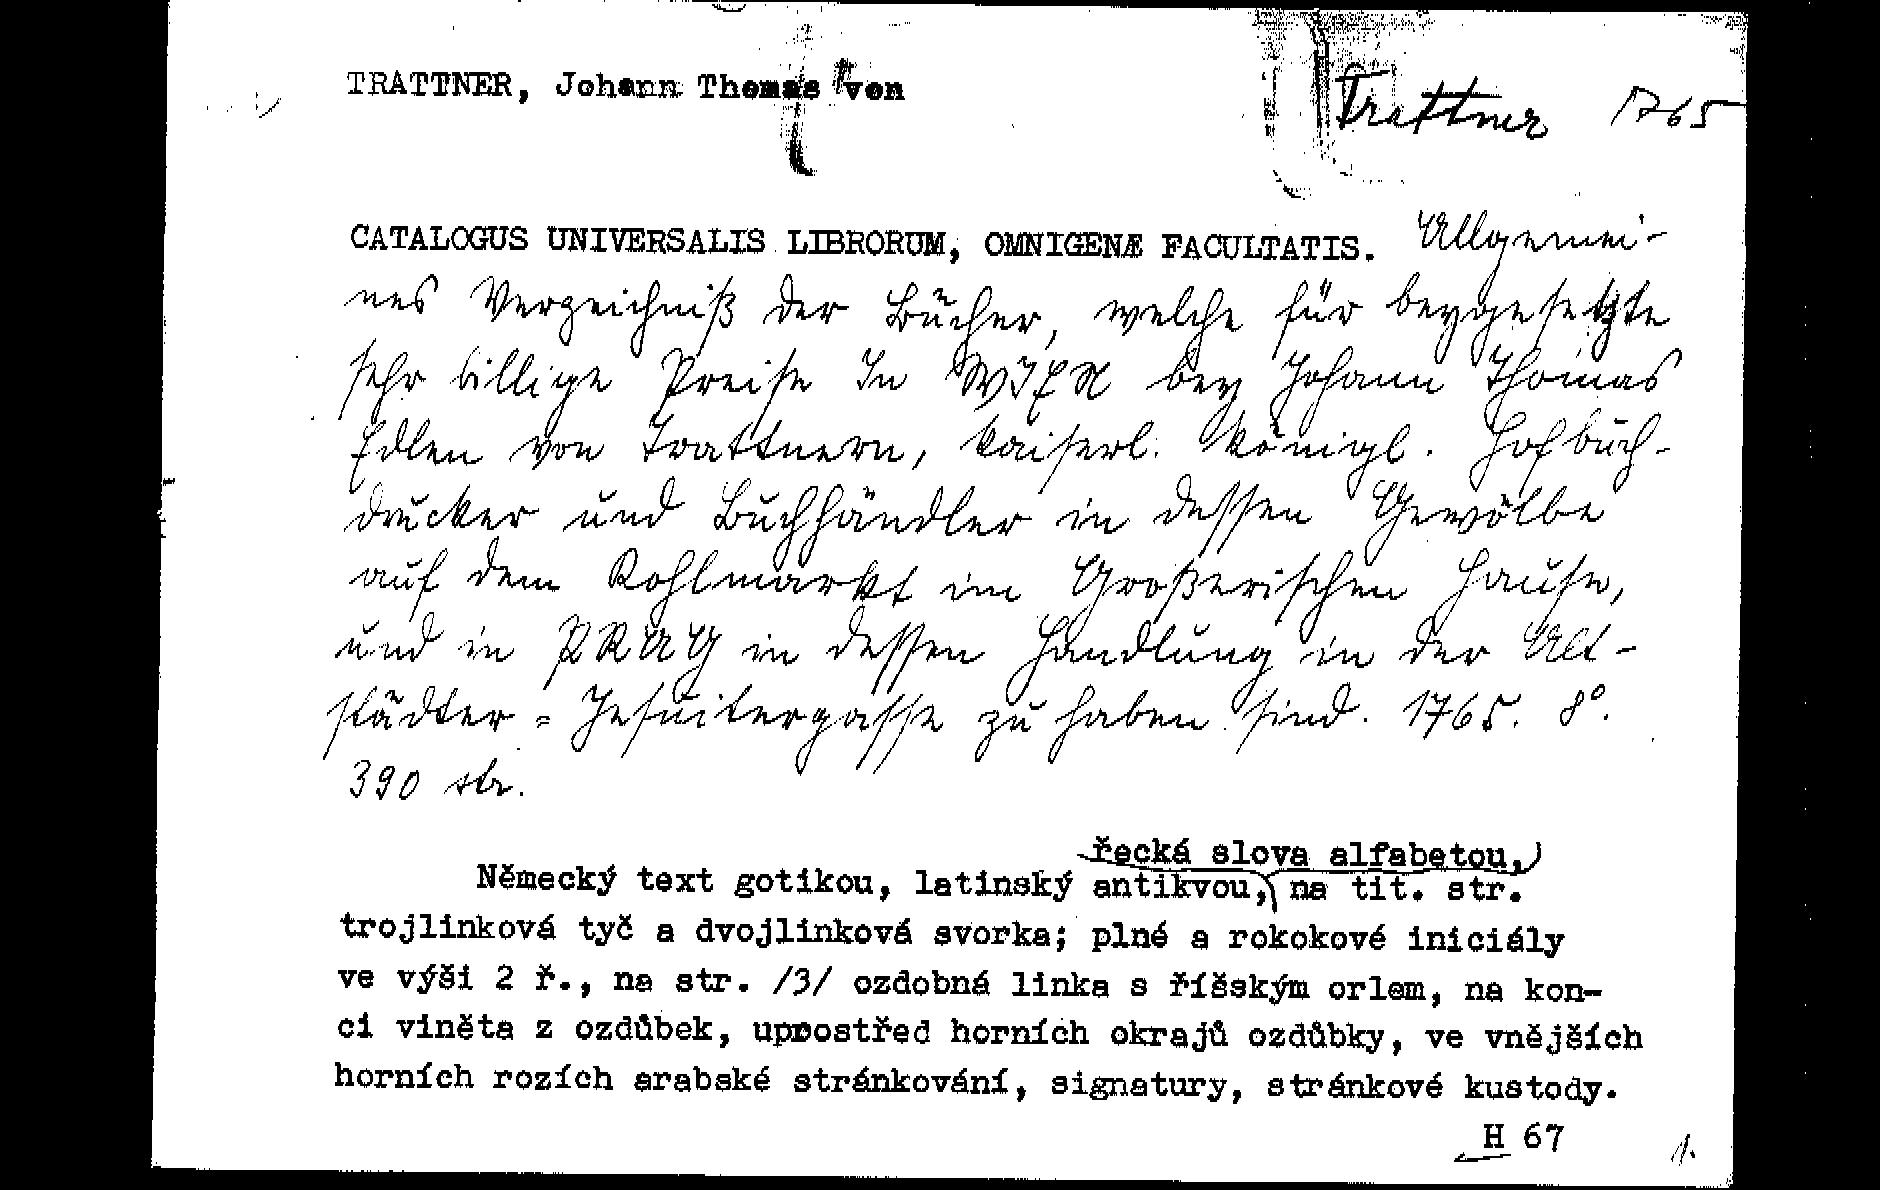 TRATTNER, Johann Thomas von
Trattner 1765
CATALOGUS UNIVERSALIS LIBRORUM, OMNIGENÆ FACULTATIS. Allgemei-
nes Verzeichniß der Bücher, welche für beygesetzte
sehr billige Preise In WIEN bey Johann Thomas
Edlen von Trattnern, kaiserl. königl. Hofbuch-
drucker und Buchhändler in dessen Gewölbe
auf dem Kohlmarkt im Großerischen Hause,
und in PRAG in dessen Handlung in der Alt-
städter = Jesuitergasse zu haben sind. 1765. 8°.
390 str.
řecká slova alfabetou,
Německý text gotikou, latinský antikvou, na tit. str.
trojlinková tyč a dvojlinková svorka; plné a rokokové iniciály
ve výši 2 ř., na str. /3/ ozdobná linka s říšským orlem, na kon-
ci viněta z ozdůbek, uprostřed horních okrajů ozdůbky, ve vnějších
horních rozích arabské stránkování, signatury, stránkové kustody.
H 67
1.